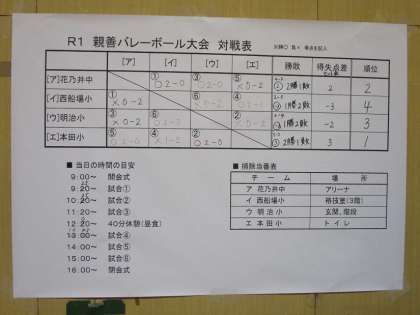 R1 親善バレーボール大会 対戦表
[ア] [イ] [ウ] [エ] 勝敗 得失点差 順位
[ア]花乃井中 ① ○2-0 ③ ○2-0 ⑤ ×0-2 2勝1敗 2 2
[イ]西船場小 ① ×0-2 ⑥ ④ 1勝2敗 -3 4
[ウ]明治小 ③ ×0-2 ⑥ ② 1勝2敗 -2 3
[エ]本田小 ⑤ ○2-0 ④ ② ○2-0 2勝1敗 3 1
■ 当日の時間の目安
9:00~ 開会式
9:20~ 試合①
10:20~ 試合②
11:20~ 試合③
12:20~ 40分休憩(昼食)
13:00~ 試合④
14:00~ 試合⑤
15:00~ 試合⑥
16:00~ 閉会式
■ 掃除当番表
チーム 場所
ア 花乃井中 アリーナ
イ 西船場小 格技室(3階)
ウ 明治小 玄関、階段
エ 本田小 トイレ